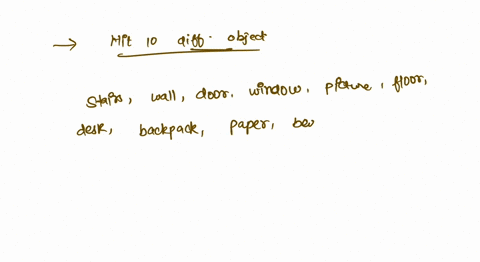 → Mit 10 diff. object
stairs, wall, door. window, picture, floor,
desk, backpack, paper, bev